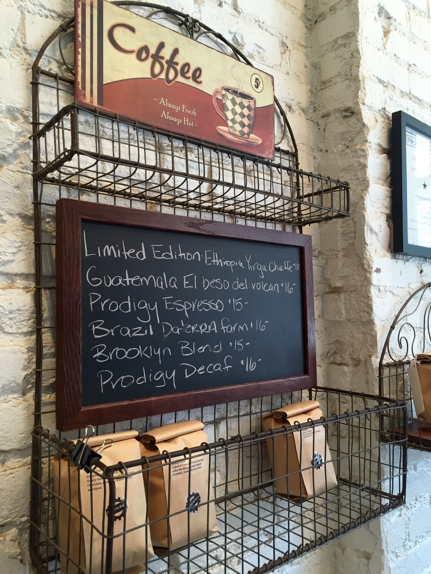 Coffee
5¢
~ Always Fresh
Always Hot ~
Limited Edition Ethiopia Yirga Cheffe
Guatemala El beso del volcan $16-
Prodigy Espresso $15-
Brazil Daterra Farm $16-
Brooklyn Blend $15-
Prodigy Decaf $16-